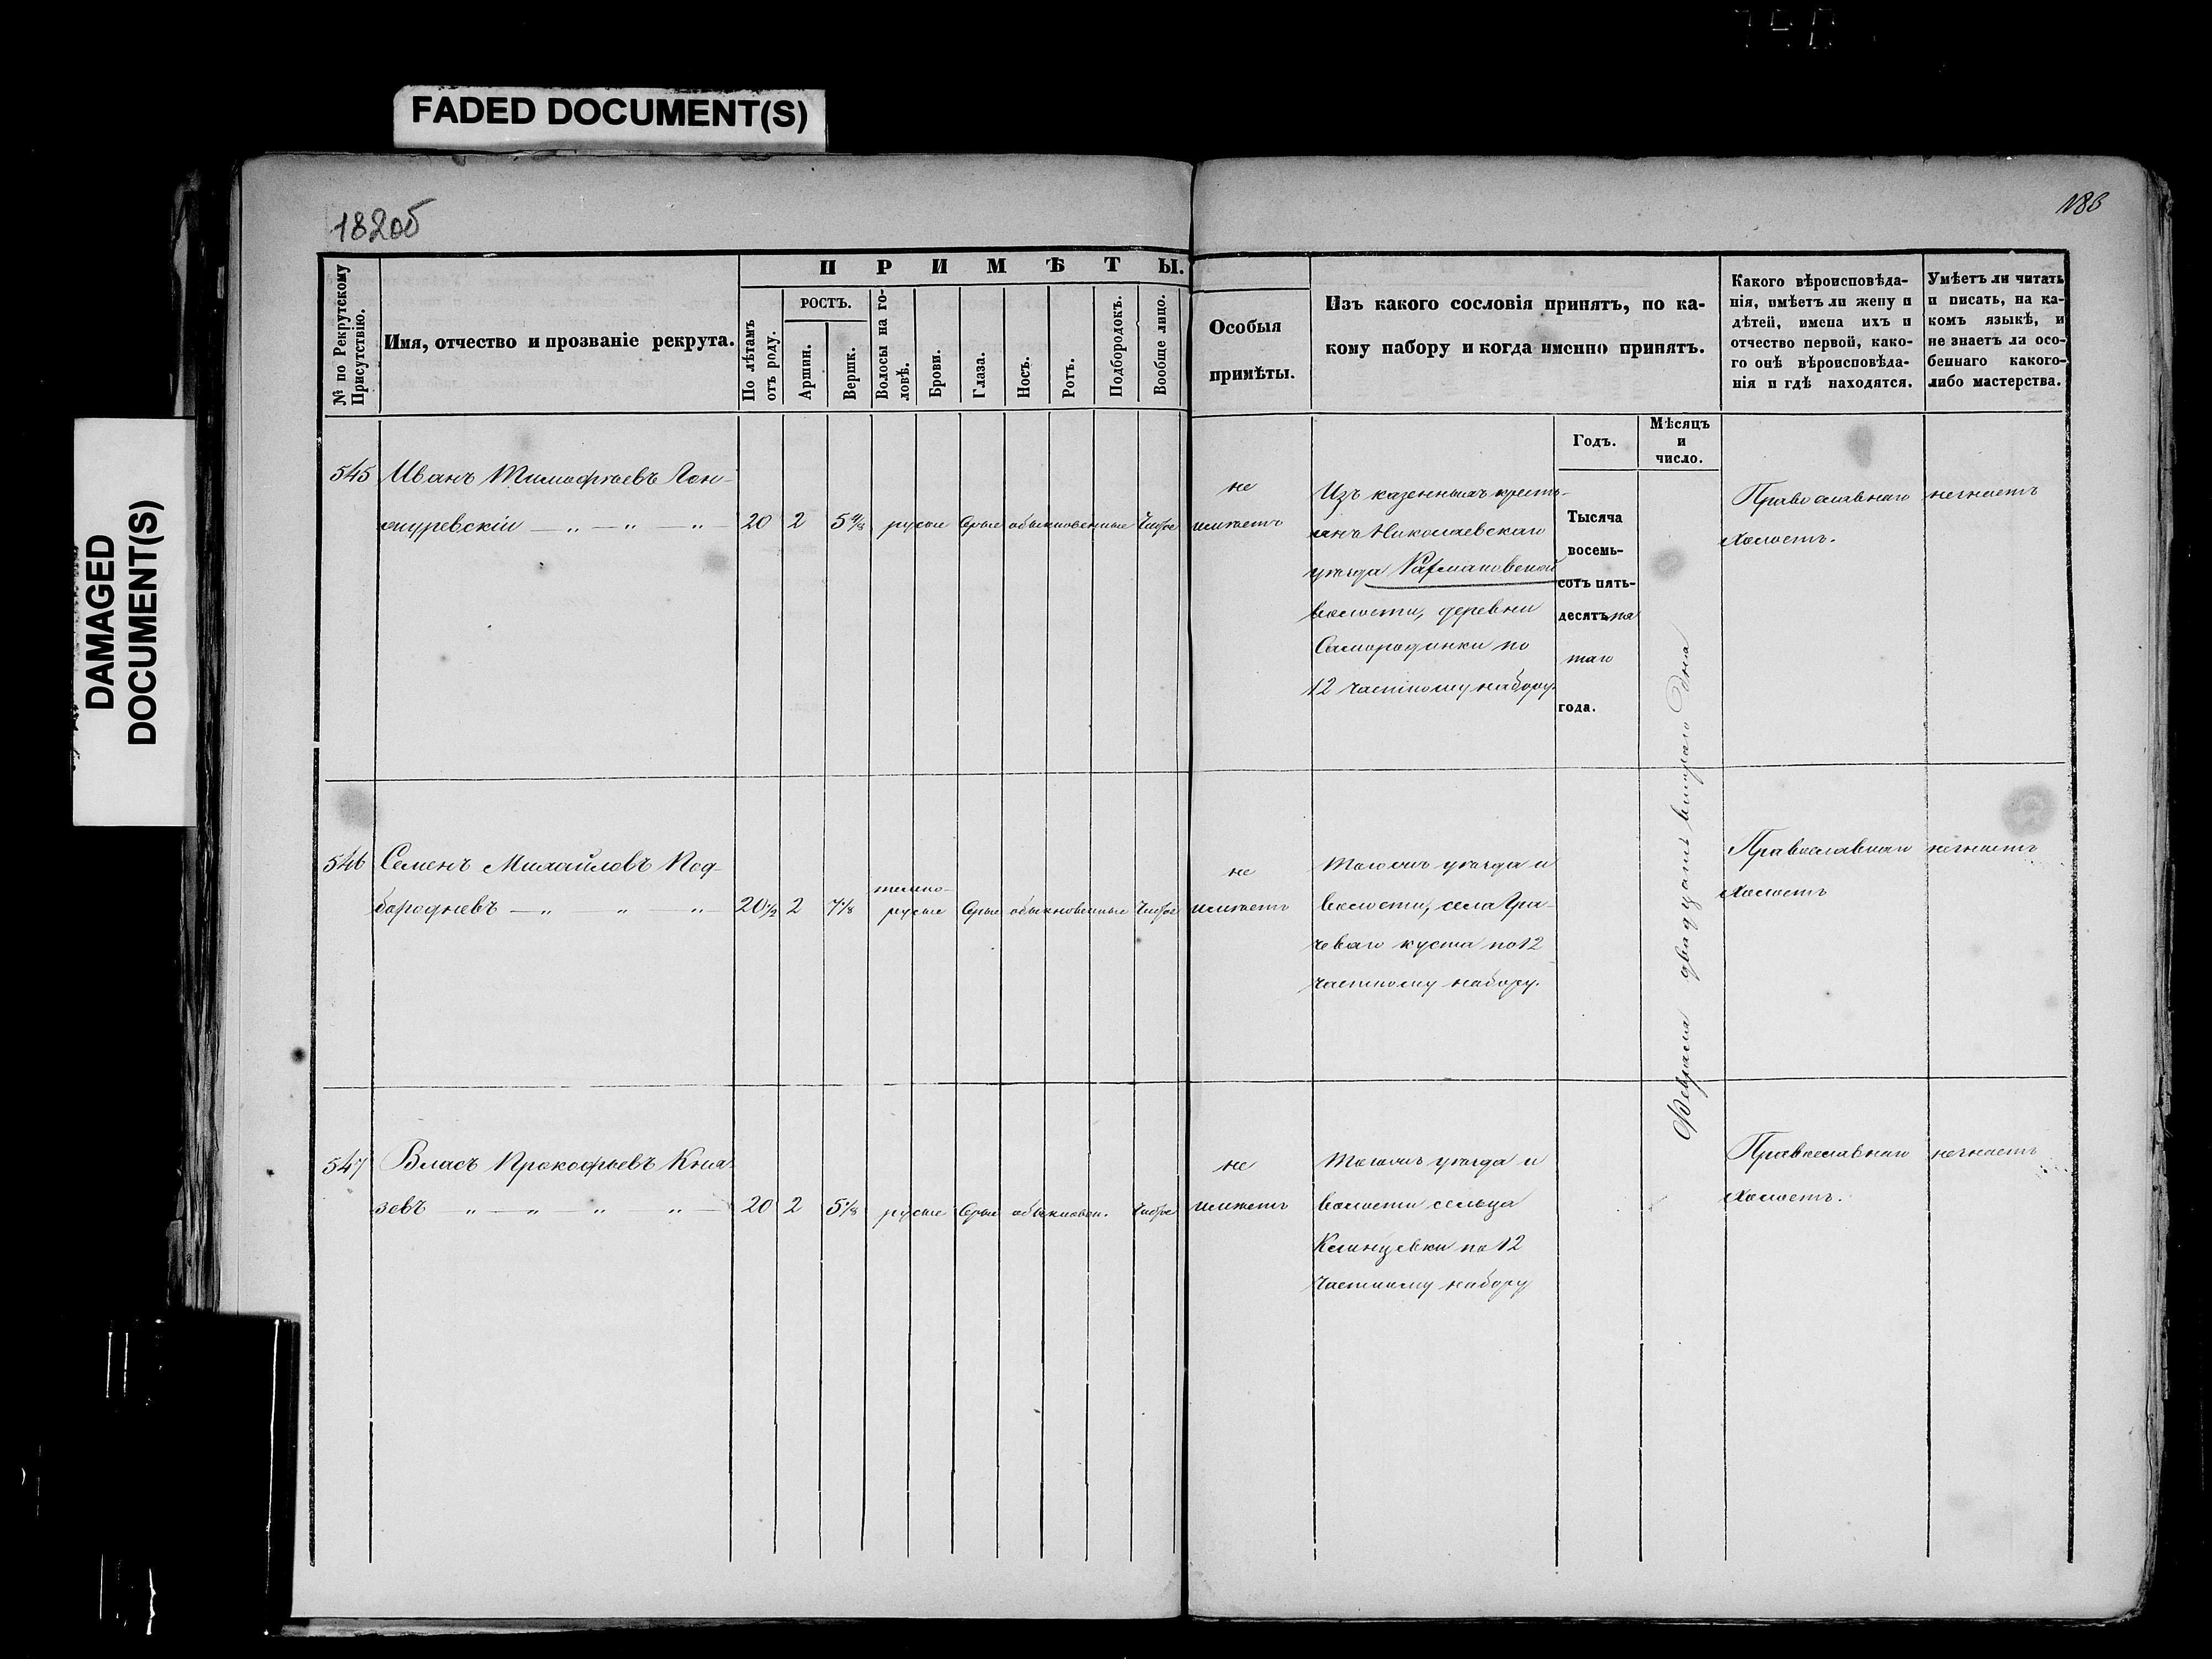 FADED DOCUMENT(S)
DAMAGED
DOCUMENT(S)
182об
183
№ по Рекрутскому Присутствію.
Имя, отчество и прозваніе рекрута.
ПРИМѢТЫ.
По лѣтамъ отъ роду.
РОСТЪ.
Аршин.
Вершк.
Волосы на головѣ.
Брови.
Глаза.
Носъ.
Ротъ.
Подбородокъ.
Вообще лицо.
Особыя
примѣты.
Изъ какого сословія принятъ, по ка-
кому набору и когда именно принятъ.
Какого вѣроисповѣда-
нія, имѣетъ ли жену и
дѣтей, имена ихъ и
отчество первой, како-
го онѣ вѣроисповѣда-
нія и гдѣ находятся.
Умѣетъ ли читать
и писать, на ка-
комъ языкѣ, и
не знаетъ ли осо-
беннаго какого-
либо мастерства.
Годъ.
Мѣсяцъ
и
число.
545 Иванъ Тимофѣевъ
20 2 5 русые Серые обыкновенные Чистое
не
имѣетъ
Изъ казенныхъ кресть-
янъ Николаевскаго
уѣзда
волости, деревни
Самородинки по
12 частному набору.
Тысяча
восемь-
сотъ пять-
десятъ пя
таго
года.
Февраля двадцать втораго дня
Православнаго
Холостъ.
незнаетъ
546 Семенъ Михайловъ Под-
бородневъ
20½ 2 7⅛ темно-
русые Серые обыкновенные Чистое
не
имѣетъ
Тогожъ уѣзда и
волости, села Гра-
чеваго куста по 12
частному набору.
Православнаго
Холостъ
незнаетъ
547 Власъ Прокофьевъ Кня
зевъ
20 2 5⅛ русые Серые обыкновен. Чистое
не
имѣетъ
Тогожъ уѣзда и
волости сельца
Клинцовки по 12
частному набору
Православнаго
Холостъ.
незнаетъ